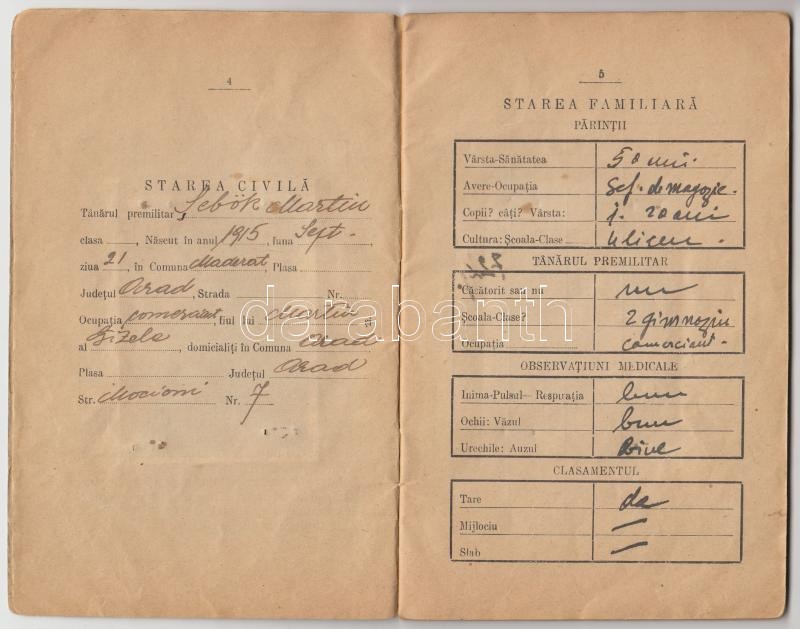 4
STAREA CIVILĂ
Tânărul premilitar Sebök Martin
clasa , Născut în anul 1915, luna Sept.
ziua 21, în Comuna Maderat, Plasa
Județul Arad, Strada Nr.
Ocupația comersant, fiul lui Martin și
al Gizela, domiciliați în Comuna Arad
Plasa Județul Arad
Str. Mocioni Nr. 7
5
STAREA FAMILIARĂ
PĂRINȚII
Vârsta-Sănătatea 50 ani.
Avere-Ocupația Șef. de magazie.
Copii? câți? Vârsta: 1. 20 ani
Cultura: Școala-Clase 4 liceu.
TÂNĂRUL PREMILITAR
Căsătorit sau nu nu
Școala-Clase? 2 gimnaziu
Ocupația comerciant.
OBSERVAȚIUNI MEDICALE
Inima-Pulsul-Respirația bun
Ochii: Văzul bun
Urechile: Auzul Bine
CLASAMENTUL
Tare da
Mijlociu —
Slab —
darabanth